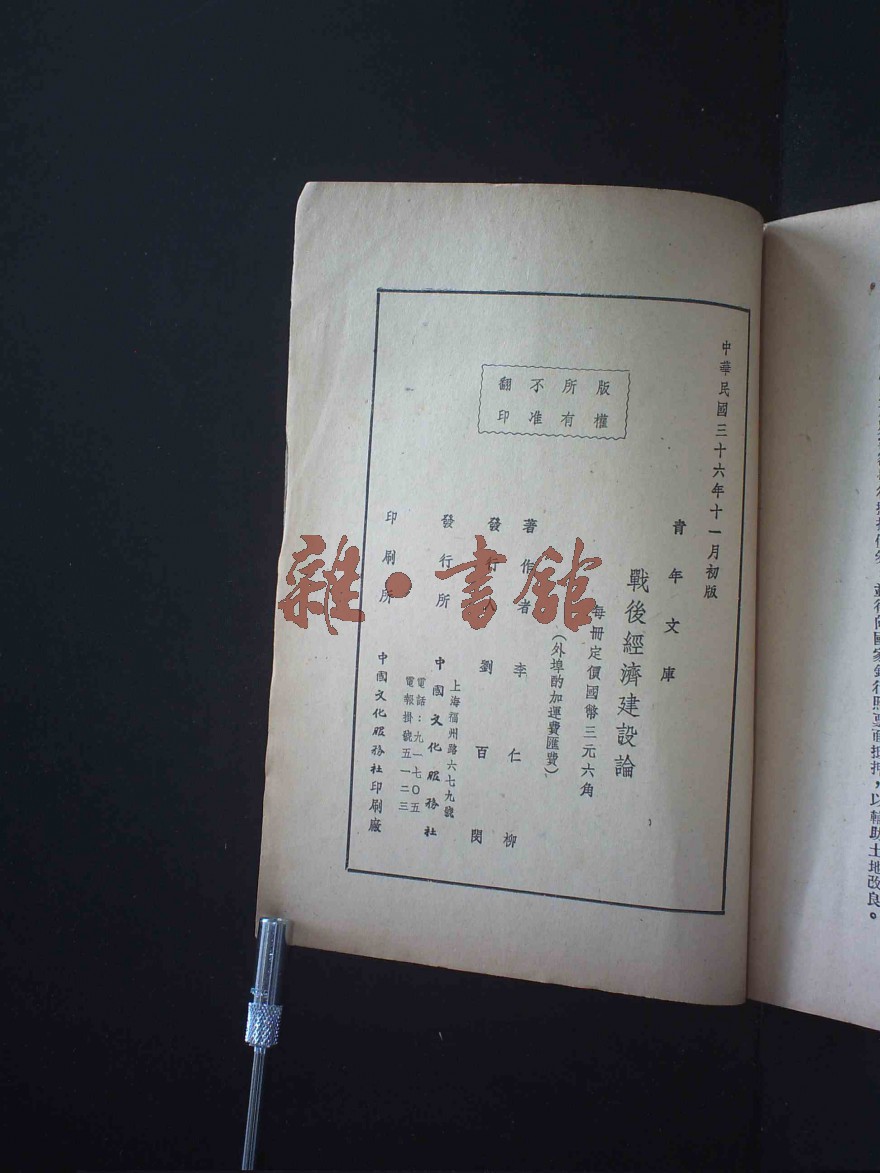 中華民國三十六年十一月初版
青年文庫
戰後經濟建設論
每冊定價國幣三元六角
(外埠酌加運費匯費)
版權所有不准翻印
著作者 李仁柳
發行人 劉百閔
發行所 中國文化服務社
上海福州路六七九號
電話：九一七〇五
電報掛號五一二三
印刷所 中國文化服務社印刷廠
雜·書館
並得向國家銀行照
以輔助土地改良。